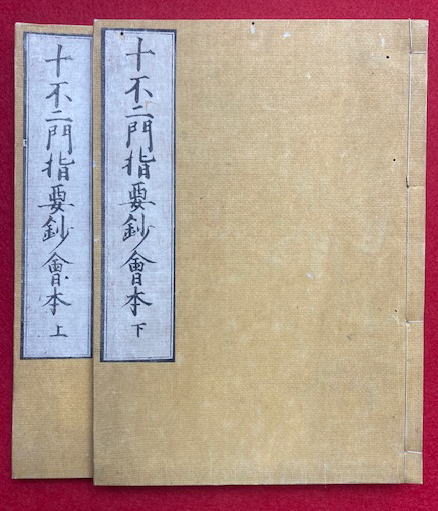 十不二門指要鈔會本 下
十不二門指要鈔會本 上